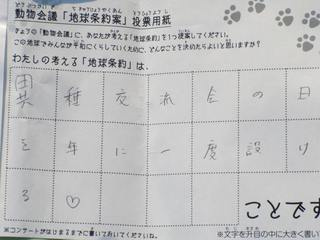 動物会議「地球条約案」投票用紙
きょうの「動物会議」に、あなたが考える「地球条約」を1つ提案してください。
この地球でみんなが平和にくらしていくために、どんなことを決めたらよいと思いますか?
わたしの考える「地球条約」は、
異種交流会の日
を年に一度設け
る♡
すでとこ
※コンサートがはじまるまでに書いておいてください。
※文字を升目の中に大きく書い